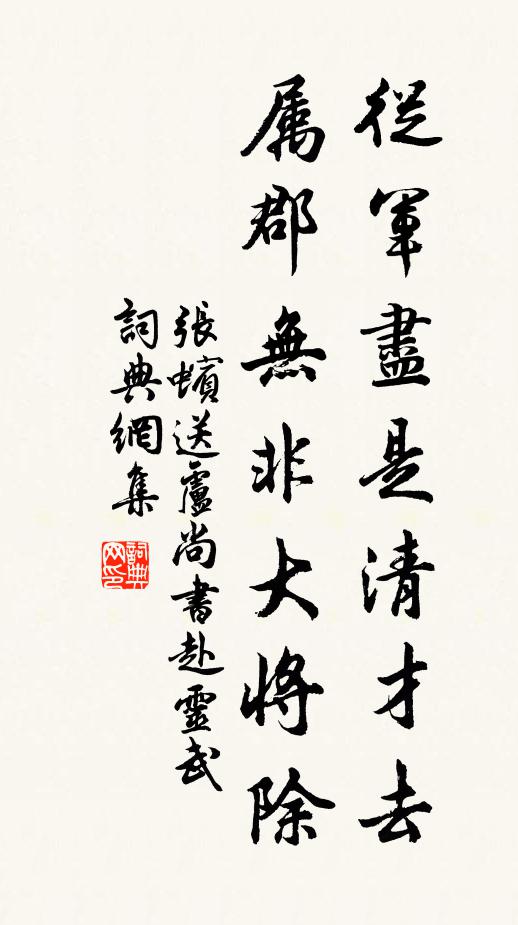 從軍盡是清才去
属郡無非大将除
張蠙送盧尚書赴靈武
詞典網集
詞典网印